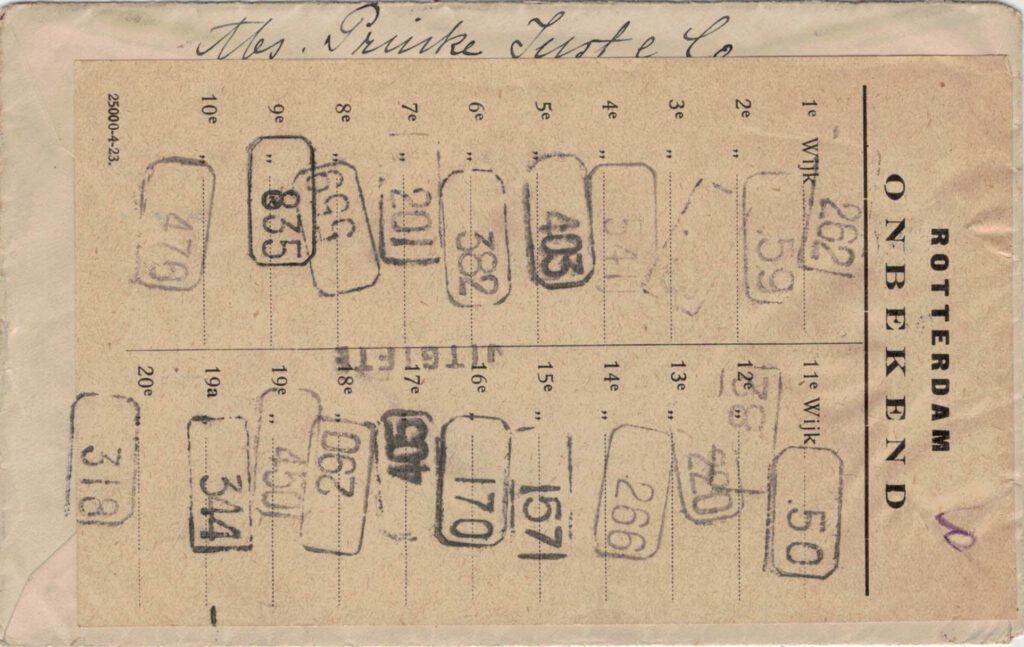 Abs. Just & Co
ROTTERDAM
ONBEKEND
1e Wijk 262
2e „ .59
3e „
4e „ 541
5e „ 403
6e „ 382
7e „ 201
8e „
9e „ 835
10e „ 479
11e Wijk .50
12e „ 138
13e „ 220
14e „ 266
15e „ 157
16e „ 170
17e „
18e „ 290
19e „ 430
19a „ 344
20e „ 318
25000-4-23.